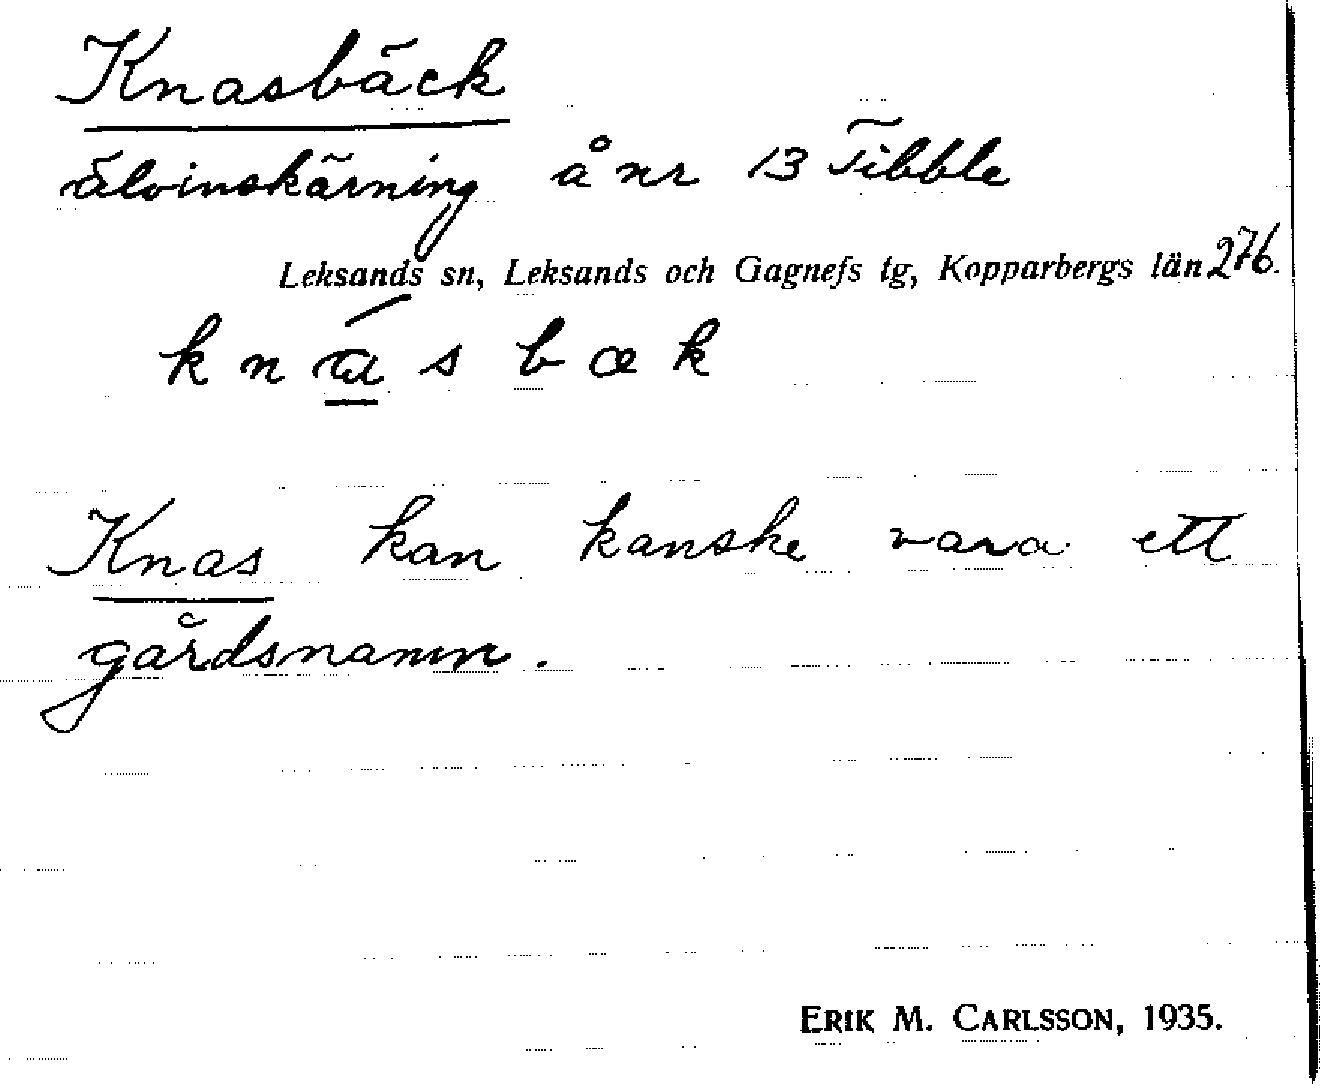 Knasbäck
älvinskärning å nr 13 Tibble
Leksands sn, Leksands och Gagnefs tg, Kopparbergs län 276.
k n á s b œ k
Knas kan kanske vara ett
gårdsnamn.
ERIK M. CARLSSON, 1935.